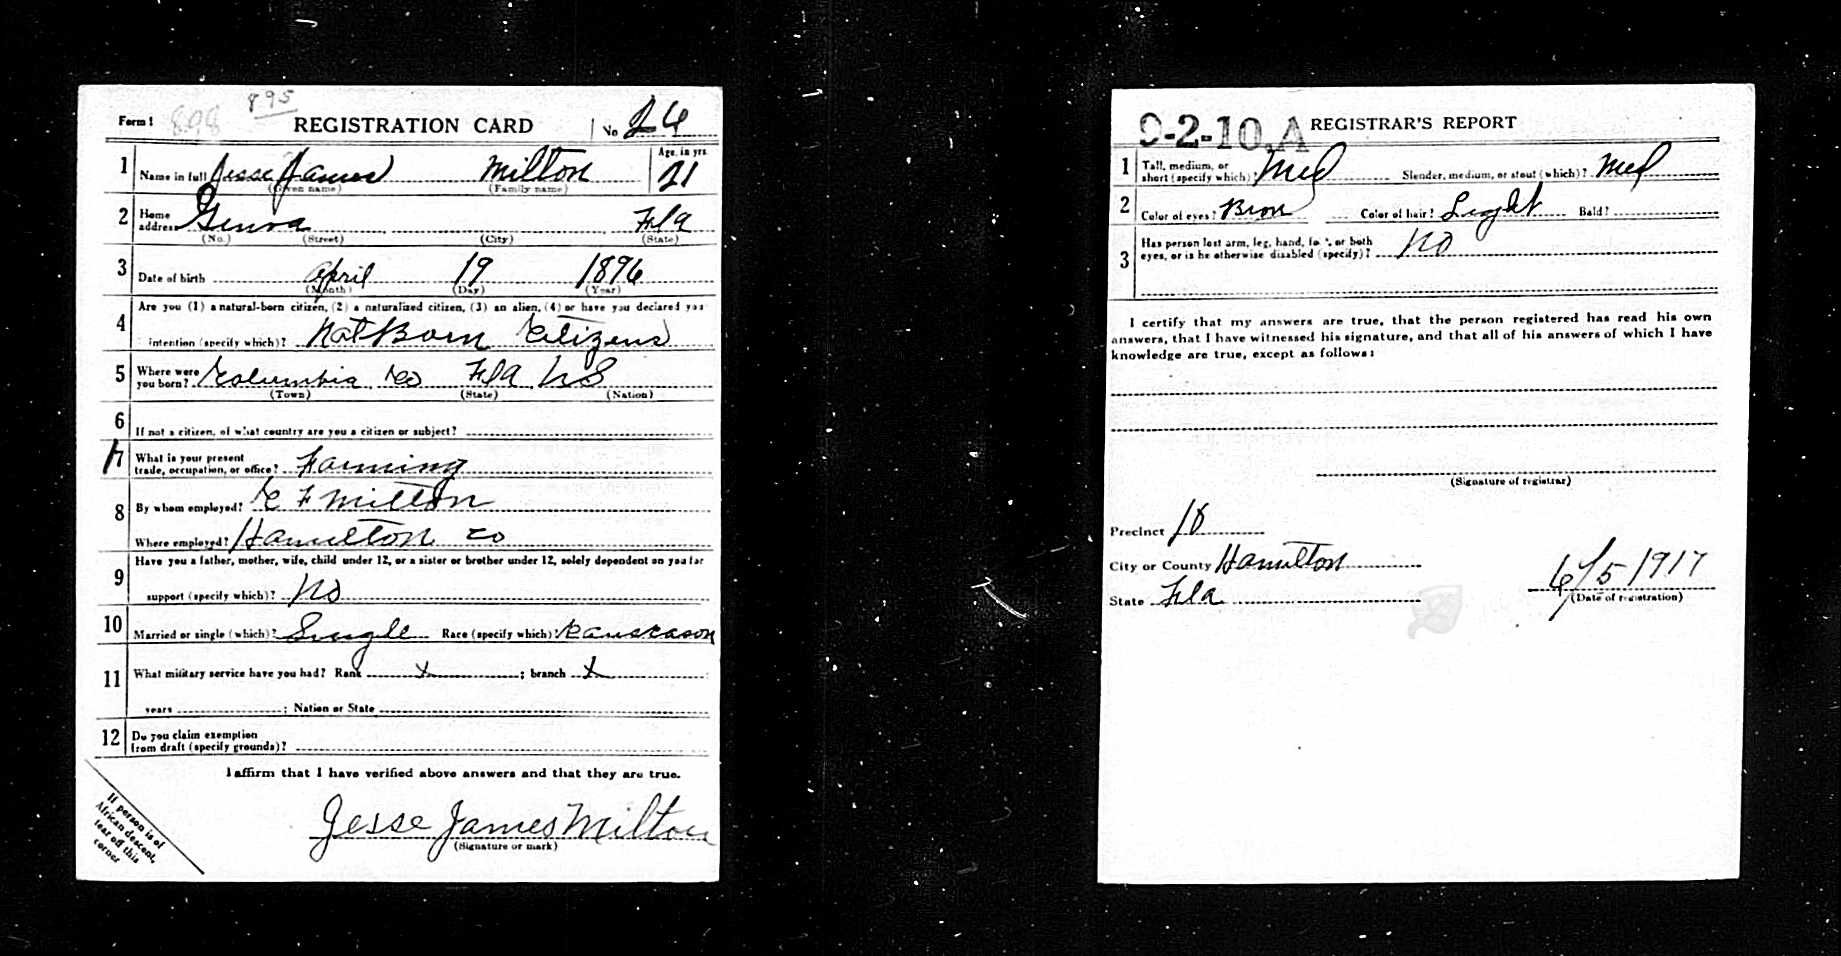 895
Form 1 898 REGISTRATION CARD No 26
1 Name in full Jesse James Milton Age, in yrs. 21
(Given name) (Family name)
2 Home address Genoa Fla
(No.) (Street) (City) (State)
3 Date of birth April 19 1896
(Month) (Day) (Year)
4 Are you (1) a natural-born citizen, (2) a naturalized citizen, (3) an alien, (4) or have you declared your
intention (specify which)? Nat Born Citizens
5 Where were you born? Columbia Co Fla US
(Town) (State) (Nation)
6 If not a citizen, of what country are you a citizen or subject?
7 What is your present
trade, occupation, or office? Farming
8 By whom employed? C F Milton
Where employed? Hamilton Co
9 Have you a father, mother, wife, child under 12, or a sister or brother under 12, solely dependent on you for
support (specify which)? No
10 Married or single (which)? Single Race (specify which)? Caucason
11 What military service have you had? Rank x ; branch x
years ; Nation or State
12 Do you claim exemption
from draft (specify grounds)?
I affirm that I have verified above answers and that they are true.
Jesse James Milton
(Signature or mark)
If person is of
African descent,
tear off this
corner
9-2-10. A REGISTRAR'S REPORT
1 Tall, medium, or
short (specify which)? Med Slender, medium, or stout (which)? Med
2 Color of eyes? Bron Color of hair? Light Bald?
3 Has person lost arm, leg, hand, foot, or both
eyes, or is he otherwise disabled (specify)? No
I certify that my answers are true, that the person registered has read his own
answers, that I have witnessed his signature, and that all of his answers of which I have
knowledge are true, except as follows:
(Signature of registrar)
Precinct 10
City or County Hamilton
State Fla 6/5 1917
(Date of registration)